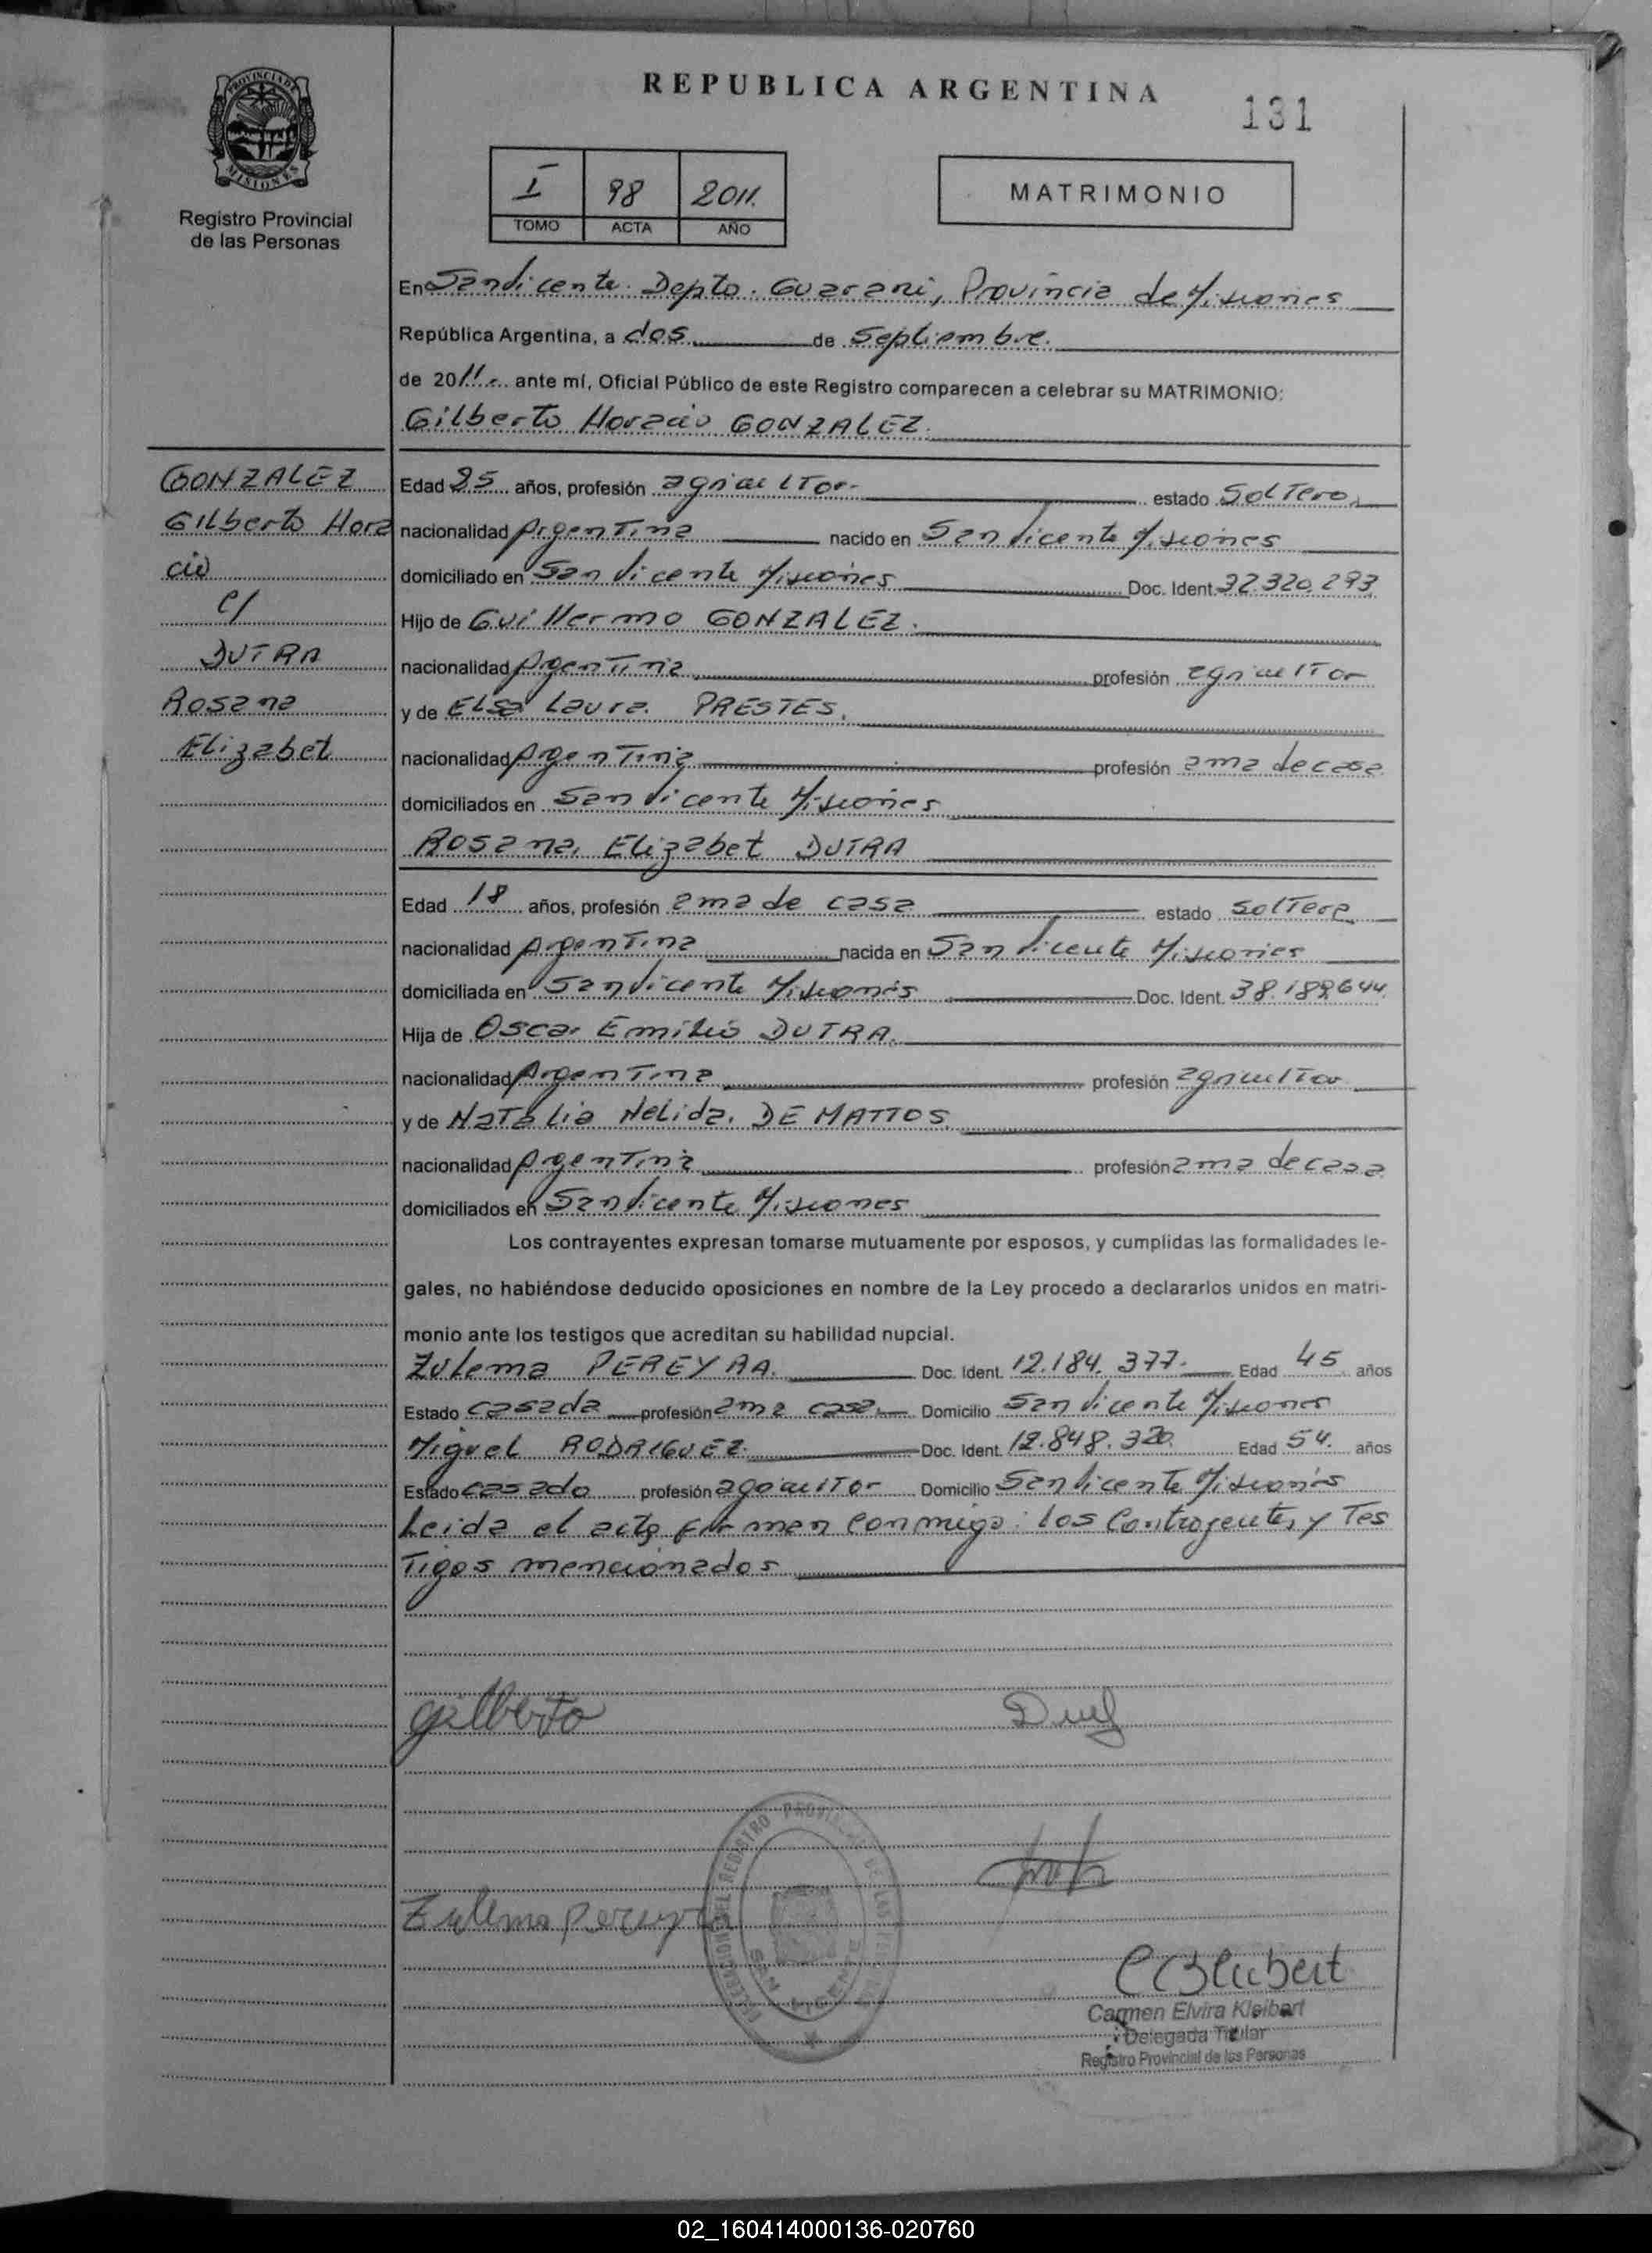 REPUBLICA ARGENTINA
131
PROVINCIA DE MISIONES
Registro Provincial
de las Personas
I 98 2011.
TOMO ACTA AÑO
MATRIMONIO
En San Vicente. Depto. Guarani, Provincia de Misiones
República Argentina, a dos de Septiembre.
de 2011.- ante mí, Oficial Público de este Registro comparecen a celebrar su MATRIMONIO:
Gilberto Horacio GONZALEZ.
GONZALEZ
Gilberto Hora
cio
c/
DUTRA
Rosana
Elizabet
Edad 25 años, profesión agricultor- estado Soltero.
nacionalidad Argentina nacido en San Vicente Misiones
domiciliado en San Vicente Misiones Doc. Ident. 32.320.293
Hijo de Guillermo GONZALEZ.
nacionalidad Argentina profesión agricultor
y de Elsa Laura. PRESTES.
nacionalidad Argentina profesión ama de casa
domiciliados en San Vicente Misiones
Rosana, Elizabet DUTRA
Edad 18 años, profesión ama de casa estado Soltera
nacionalidad Argentina nacida en San Vicente Misiones
domiciliada en San Vicente Misiones Doc. Ident. 38.189.644.
Hija de Oscar Emilio DUTRA.
nacionalidad Argentina profesión agricultor
y de Natalia Nelida. DE MATTOS.
nacionalidad Argentina profesión ama de casa
domiciliados en San Vicente Misiones
Los contrayentes expresan tomarse mutuamente por esposos, y cumplidas las formalidades le-
gales, no habiéndose deducido oposiciones en nombre de la Ley procedo a declararlos unidos en matri-
monio ante los testigos que acreditan su habilidad nupcial.
Zulema PEREYRA. Doc. Ident. 12.184.377.- Edad 45 años
Estado casada profesión ama casa. Domicilio San Vicente Misiones
Miguel RODRIGUEZ. Doc. Ident. 12.848.320. Edad 54. años
Estado casado profesión agricultor Domicilio San Vicente Misiones
Leida el acta firman conmigo: los Contrayentes y Tes
Tigos mencionados
gilberto
Zulema pereyra
DELEGACION DEL REGISTRO PROVINCIAL DE LAS PERSONAS
SAN VICENTE
C E Kleibert
Carmen Elvira Kleibert
Delegada Titular
Registro Provincial de las Personas
02_160414000136-020760